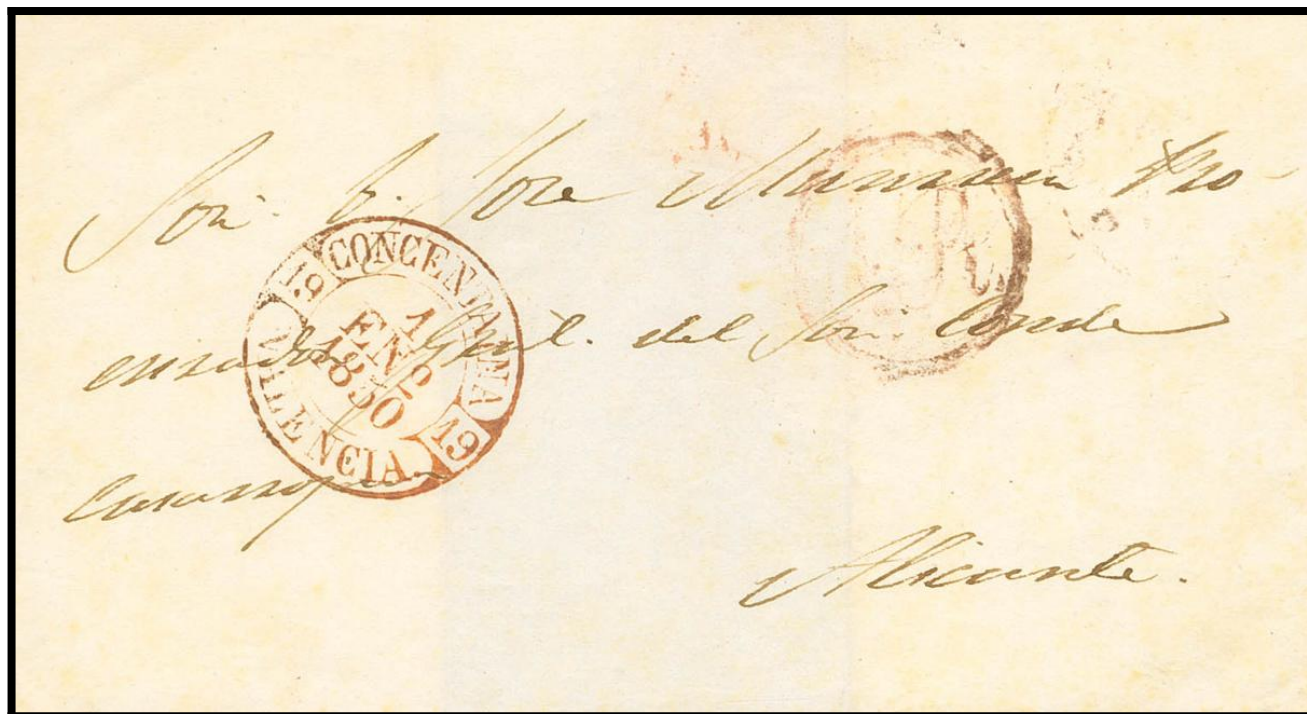 Sor. D. Jose Pro-
curador Gral. del Sor. Conde
Casarrojas
Alicante.
CONCENTAINA
19
1
ENº
1850
19
VALENCIA.